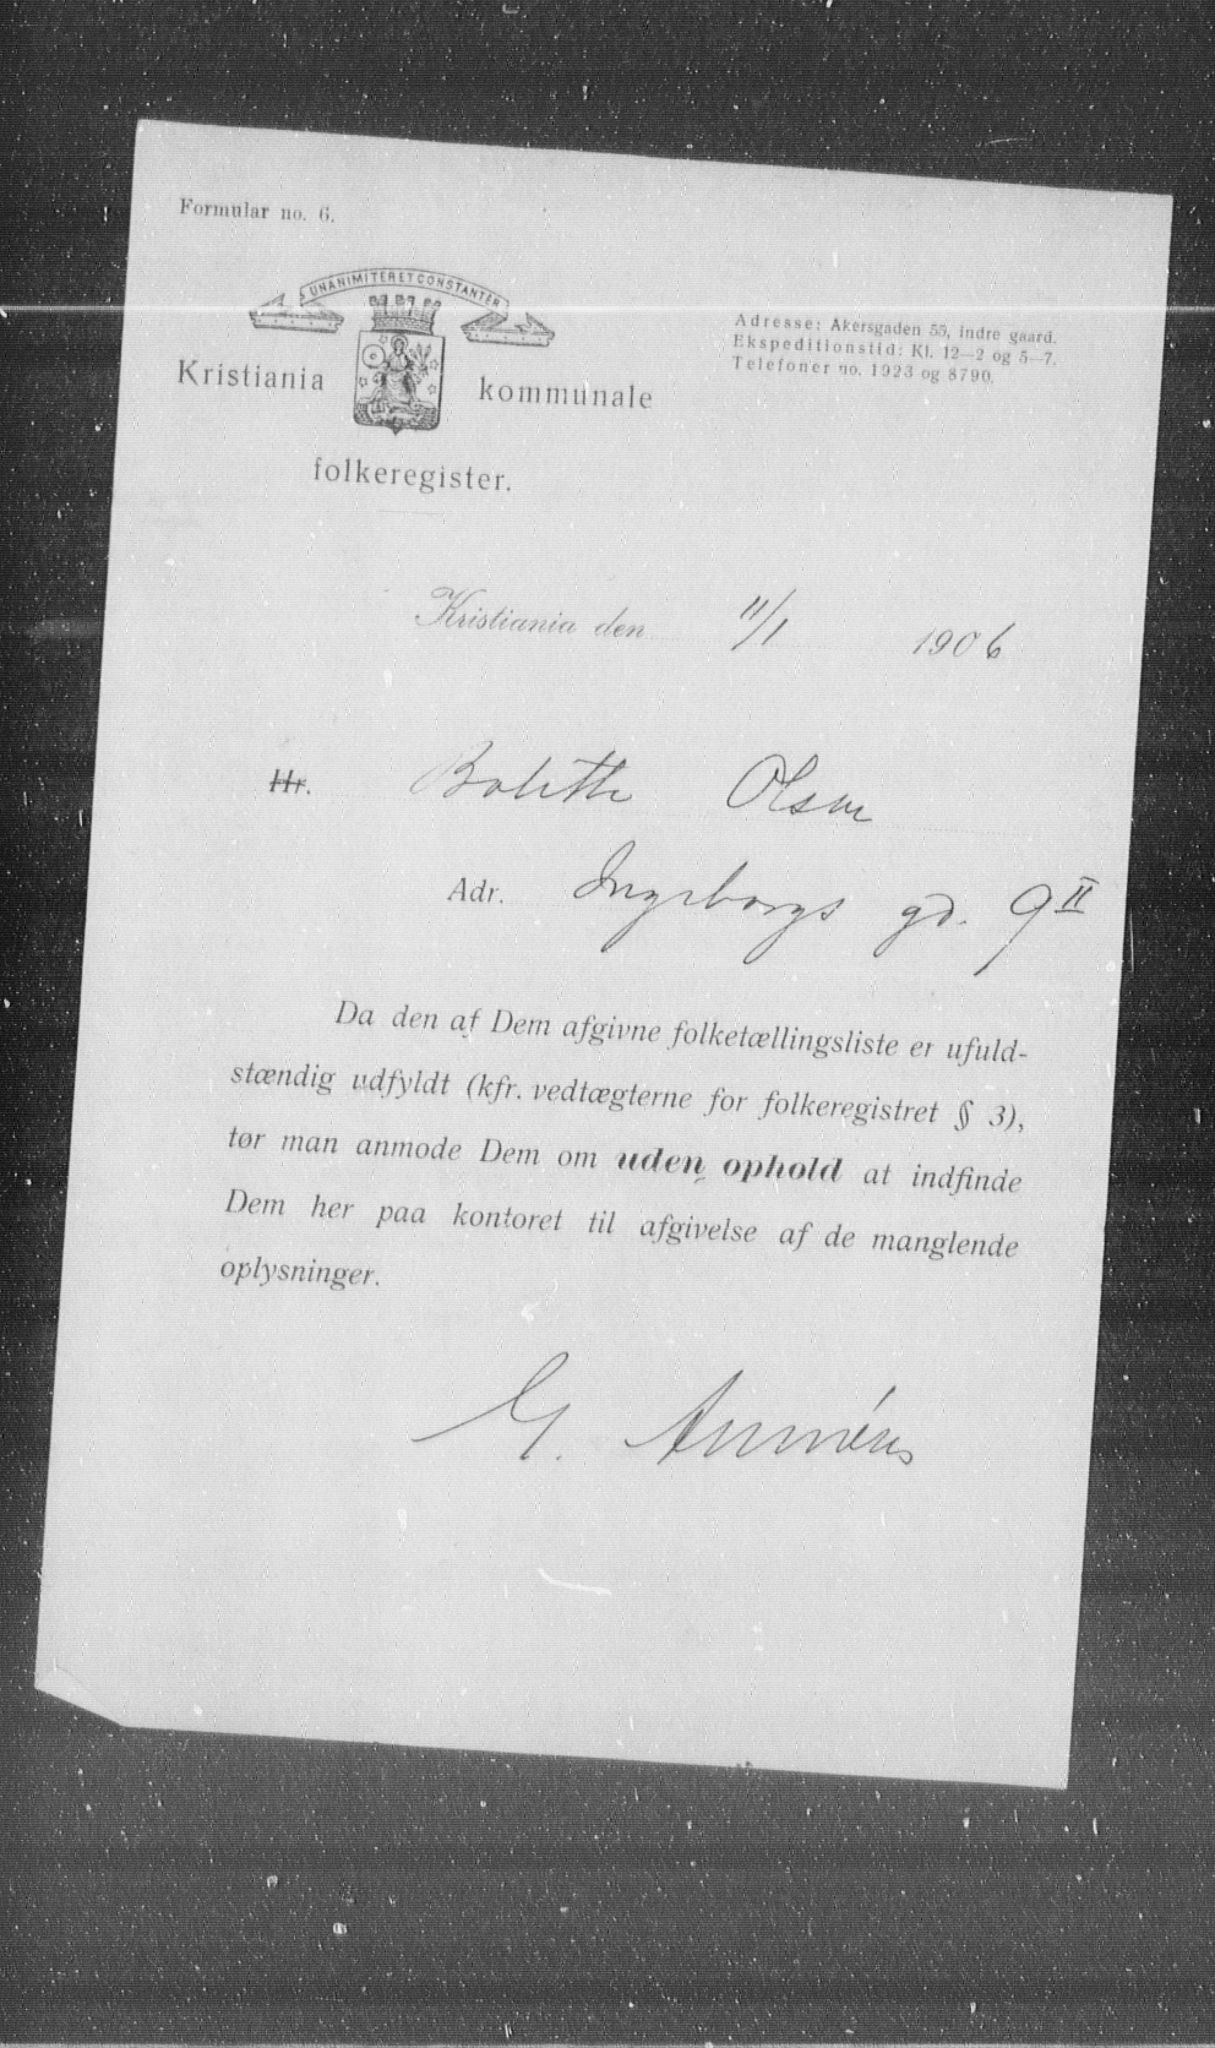 Formular no. 6.
UNANIMITER ET CONSTANTER
Adresse: Akersgaden 55, indre gaard.
Ekspeditionstid: Kl. 12—2 og 5—7.
Telefoner no. 1923 og 8790.
Kristiania kommunale
folkeregister.
Kristiania den 11/1 1906
Hr. Bolette Olsen
Adr. Ingeborgs gd. 9 II
Da den af Dem afgivne folketællingsliste er ufuld-
stændig udfyldt (kfr. vedtægterne for folkeregistret § 3),
tør man anmode Dem om uden ophold at indfinde
Dem her paa kontoret til afgivelse af de manglende
oplysninger.
G. Amnéus